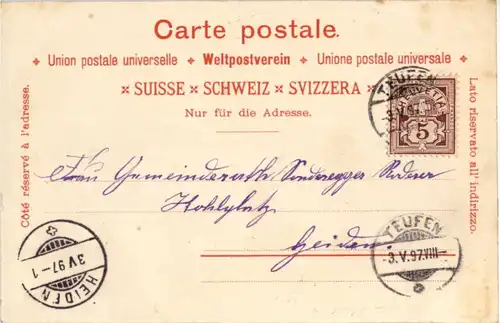 Carte postale.
Union postale universelle Weltpostverein Unione postale universale
SUISSE SCHWEIZ SVIZZERA
Nur für die Adresse.
Côté réservé à l'adresse.
Lato riservato all' indirizzo.
TEUFEN
HELVETIA
5
Frau Gemeinderath Sonderegger
Hohlplatz
Heiden.
TEUFEN
3.V.97.VIII
3 V 97-1
HEIDEN